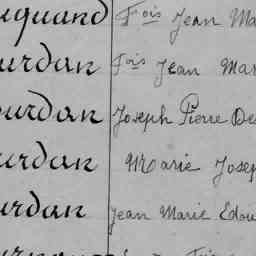 quand Fois Jean Ma
urdan Fois Jean Mar
ourdan Joseph Pierre De
urdan Marie Josep
urdan Jean Marie Edou